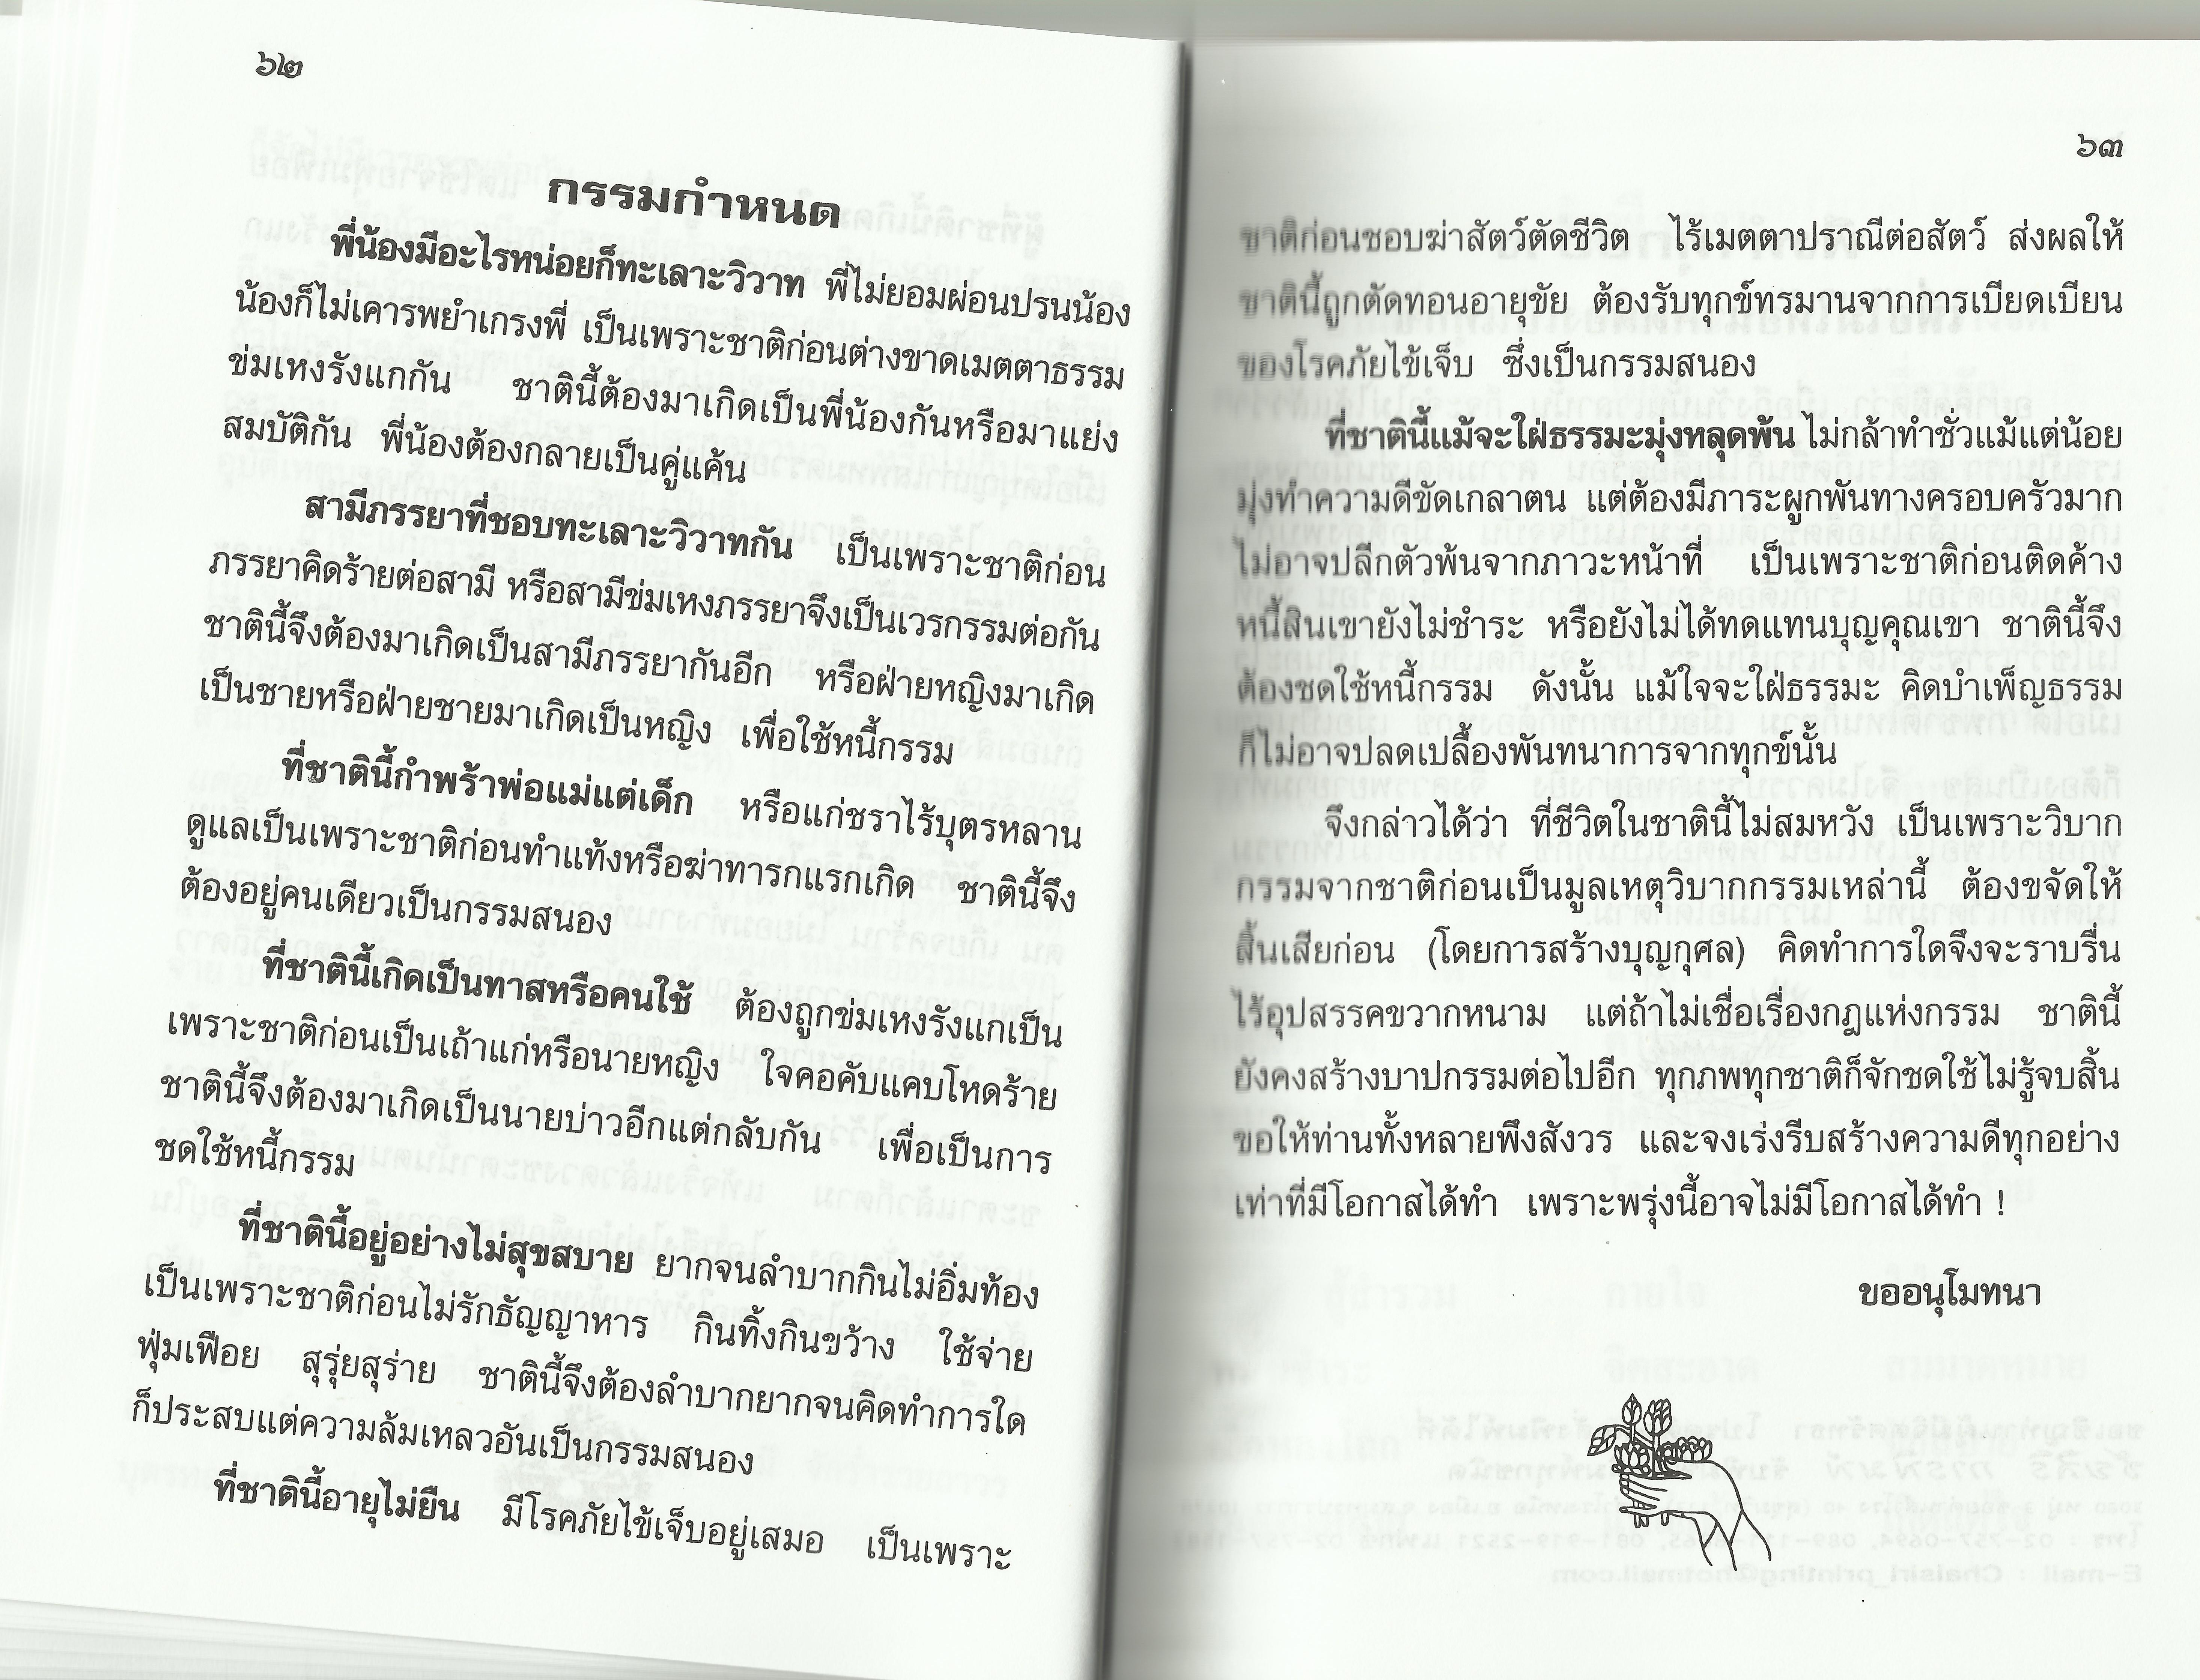 ๖๒
กรรมกำหนด
พี่น้องมีอะไรหน่อยก็ทะเลาะวิวาท พี่ไม่ยอมผ่อนปรนน้อง
น้องก็ไม่เคารพยำเกรงพี่ เป็นเพราะชาติก่อนต่างขาดเมตตาธรรม
ข่มเหงรังแกกัน ชาตินี้ต้องมาเกิดเป็นพี่น้องกันหรือมาแย่ง
สมบัติกัน พี่น้องต้องกลายเป็นคู่แค้น
สามีภรรยาที่ชอบทะเลาะวิวาทกัน เป็นเพราะชาติก่อน
ภรรยาคิดร้ายต่อสามี หรือสามีข่มเหงภรรยาจึงเป็นเวรกรรมต่อกัน
ชาตินี้จึงต้องมาเกิดเป็นสามีภรรยากันอีก หรือฝ่ายหญิงมาเกิด
เป็นชายหรือฝ่ายชายมาเกิดเป็นหญิง เพื่อใช้หนี้กรรม
ที่ชาตินี้กำพร้าพ่อแม่แต่เด็ก หรือแก่ชราไร้บุตรหลาน
ดูแลเป็นเพราะชาติก่อนทำแท้งหรือฆ่าทารกแรกเกิด ชาตินี้จึง
ต้องอยู่คนเดียวเป็นกรรมสนอง
ที่ชาตินี้เกิดเป็นทาสหรือคนใช้ ต้องถูกข่มเหงรังแกเป็น
เพราะชาติก่อนเป็นเถ้าแก่หรือนายหญิง ใจคอคับแคบโหดร้าย
ชาตินี้จึงต้องมาเกิดเป็นนายบ่าวอีกแต่กลับกัน เพื่อเป็นการ
ชดใช้หนี้กรรม
ที่ชาตินี้อยู่อย่างไม่สุขสบาย ยากจนลำบากกินไม่อิ่มท้อง
เป็นเพราะชาติก่อนไม่รักธัญญาหาร กินทิ้งกินขว้าง ใช้จ่าย
ฟุ่มเฟือย สุรุ่ยสุร่าย ชาตินี้จึงต้องลำบากยากจนคิดทำการใด
ก็ประสบแต่ความล้มเหลวอันเป็นกรรมสนอง
ที่ชาตินี้อายุไม่ยืน มีโรคภัยไข้เจ็บอยู่เสมอ เป็นเพราะ
๖๓
ชาติก่อนชอบฆ่าสัตว์ตัดชีวิต ไร้เมตตาปราณีต่อสัตว์ ส่งผลให้
ชาตินี้ถูกตัดทอนอายุขัย ต้องรับทุกข์ทรมานจากการเบียดเบียน
ของโรคภัยไข้เจ็บ ซึ่งเป็นกรรมสนอง
ที่ชาตินี้แม้จะใฝ่ธรรมะมุ่งหลุดพ้น ไม่กล้าทำชั่วแม้แต่น้อย
มุ่งทำความดีขัดเกลาตน แต่ต้องมีภาระผูกพันทางครอบครัวมาก
ไม่อาจปลีกตัวพ้นจากภาวะหน้าที่ เป็นเพราะชาติก่อนติดค้าง
หนี้สินเขายังไม่ชำระ หรือยังไม่ได้ทดแทนบุญคุณเขา ชาตินี้จึง
ต้องชดใช้หนี้กรรม ดังนั้น แม้ใจจะใฝ่ธรรมะ คิดบำเพ็ญธรรม
ก็ไม่อาจปลดเปลื้องพันทนาการจากทุกข์นั้น
จึงกล่าวได้ว่า ที่ชีวิตในชาตินี้ไม่สมหวัง เป็นเพราะวิบาก
กรรมจากชาติก่อนเป็นมูลเหตุวิบากกรรมเหล่านี้ ต้องขจัดให้
สิ้นเสียก่อน (โดยการสร้างบุญกุศล) คิดทำการใดจึงจะราบรื่น
ไร้อุปสรรคขวากหนาม แต่ถ้าไม่เชื่อเรื่องกฎแห่งกรรม ชาตินี้
ยังคงสร้างบาปกรรมต่อไปอีก ทุกภพทุกชาติก็จักชดใช้ไม่รู้จบสิ้น
ขอให้ท่านทั้งหลายพึงสังวร และจงเร่งรีบสร้างความดีทุกอย่าง
เท่าที่มีโอกาสได้ทำ เพราะพรุ่งนี้อาจไม่มีโอกาสได้ทำ !
ขออนุโมทนา